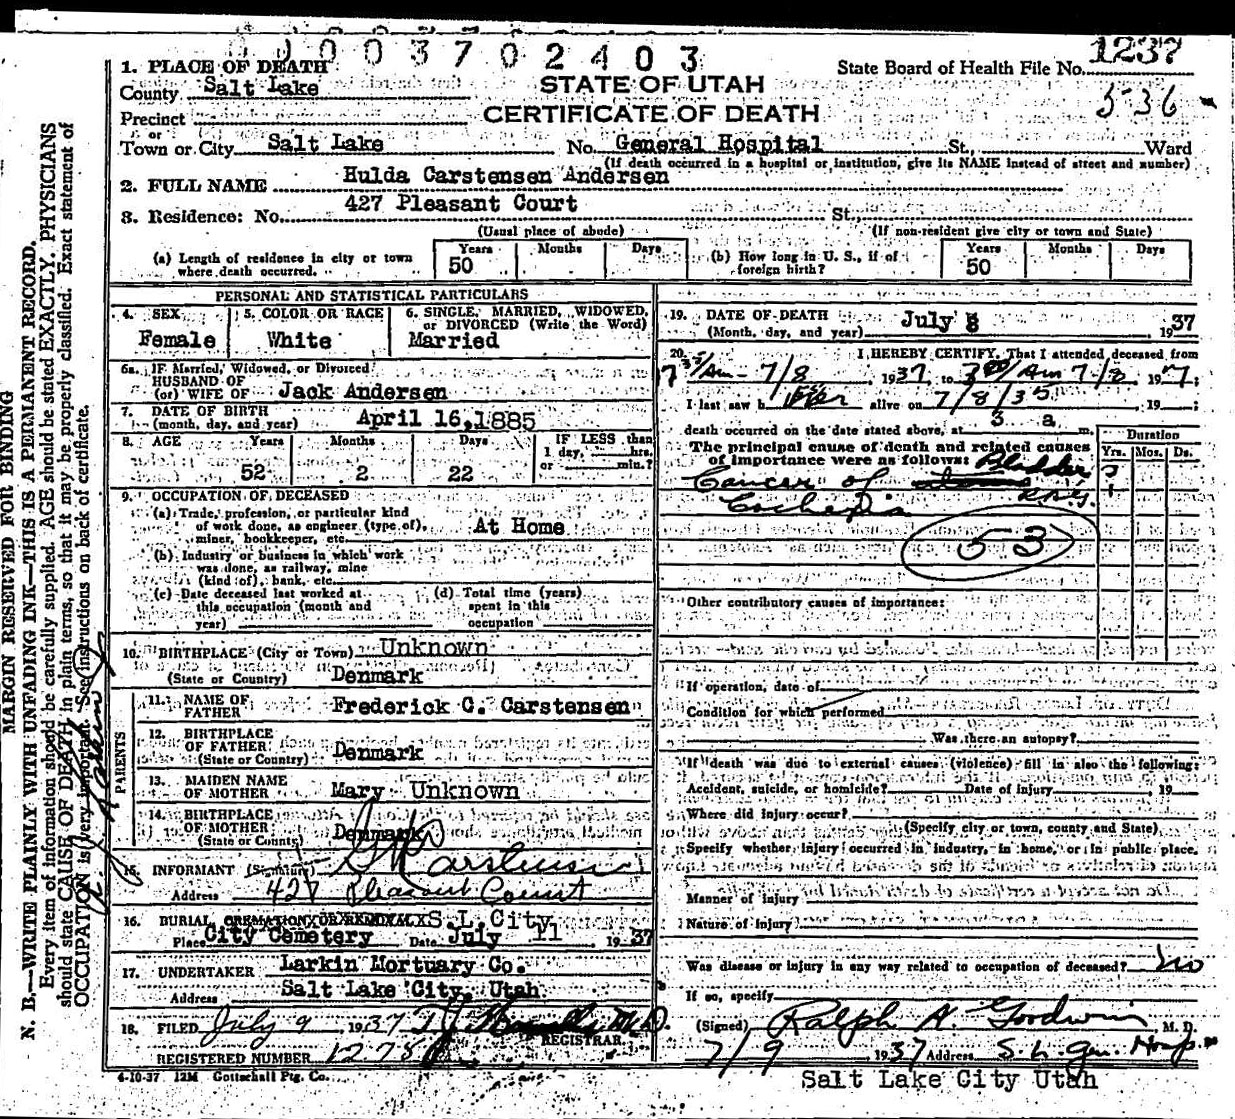 0 1 0 0 3 7 0 2 4 0 3
1. PLACE OF DEATH
State Board of Health File No. 1237
County Salt Lake
STATE OF UTAH
536
Precinct
CERTIFICATE OF DEATH
or
Town or City Salt Lake No. General Hospital St., Ward
(If death occurred in a hospital or institution, give its NAME instead of street and number)
2. FULL NAME Hulda Carstensen Andersen
3. Residence: No. 427 Pleasant Court St.,
(Usual place of abode) (If non-resident give city or town and State)
(a) Length of residence in city or town where death occurred. Years 50 Months Days
(b) How long in U. S., if of foreign birth? Years 50 Months Days
PERSONAL AND STATISTICAL PARTICULARS
4. SEX Female
5. COLOR OR RACE White
6. SINGLE, MARRIED, WIDOWED, or DIVORCED (Write the Word) Married
6a. IF Married, Widowed, or Divorced
HUSBAND OF
(or) WIFE OF Jack Andersen
7. DATE OF BIRTH
(month, day, and year) April 16, 1885
8. AGE Years 52 Months 2 Days 22
IF LESS than
1 day, hrs.
or min.?
9. OCCUPATION OF DECEASED
(a) Trade, profession, or particular kind
of work done, as engineer (type of),
miner, bookkeeper, etc. At Home
(b) Industry or business in which work
was done, as railway, mine
(kind of), bank, etc.
(c) Date deceased last worked at
this occupation (month and
year)
(d) Total time (years)
spent in this
occupation
10. BIRTHPLACE (City or Town) Unknown
(State or Country) Denmark
PARENTS
11. NAME OF
FATHER Frederick C. Carstensen
12. BIRTHPLACE
OF FATHER
(State or Country) Denmark
13. MAIDEN NAME
OF MOTHER Mary Unknown
14. BIRTHPLACE
OF MOTHER
(State or County) Denmark
15. INFORMANT (Signature) Carstensen
Address 427 Pleasant Court
16. BURIAL, CREMATION, OR REMOVAL S.L. City
Place City Cemetery Date July 11, 1937
17. UNDERTAKER Larkin Mortuary Co.
Address Salt Lake City, Utah
18. FILED July 9, 1937 M.D.
REGISTRAR.
REGISTERED NUMBER 1278
4-10-37 12M Gottschall Ptg. Co.
19. DATE OF DEATH
(Month, day, and year) July 8 1937
20. I HEREBY CERTIFY, That I attended deceased from
7/8, 1937, to Am 7-8, 19
I last saw h alive on 7/8/35, 19 ;
death occurred on the date stated above, at 3 a m.
The principal cause of death and related causes
of importance were as follows: Bladder
Duration
Yrs. Mos. Ds.
Cancer of
53
Other contributory causes of importance:
If operation, date of
Condition for which performed
Was there an autopsy?
If death was due to external causes (violence) fill in also the following:
Accident, suicide, or homicide? Date of injury , 19
Where did injury occur?
(Specify city or town, county and State)
Specify whether injury occurred in industry, in home, or in public place.
Manner of injury
Nature of injury
Was disease or injury in any way related to occupation of deceased? no
If so, specify
(Signed) Ralph N. Goodwin M. D.
7/9 1937 Address S. L. Gen. Hosp.
Salt Lake City Utah
MARGIN RESERVED FOR BINDING
N. B.—WRITE PLAINLY WITH UNFADING INK—THIS IS A PERMANENT RECORD.
Every item of information should be carefully supplied. AGE should be stated EXACTLY. PHYSICIANS
should state CAUSE OF DEATH in plain terms, so that it may be properly classified. Exact statement of
OCCUPATION is very important. See instructions on back of certificate.